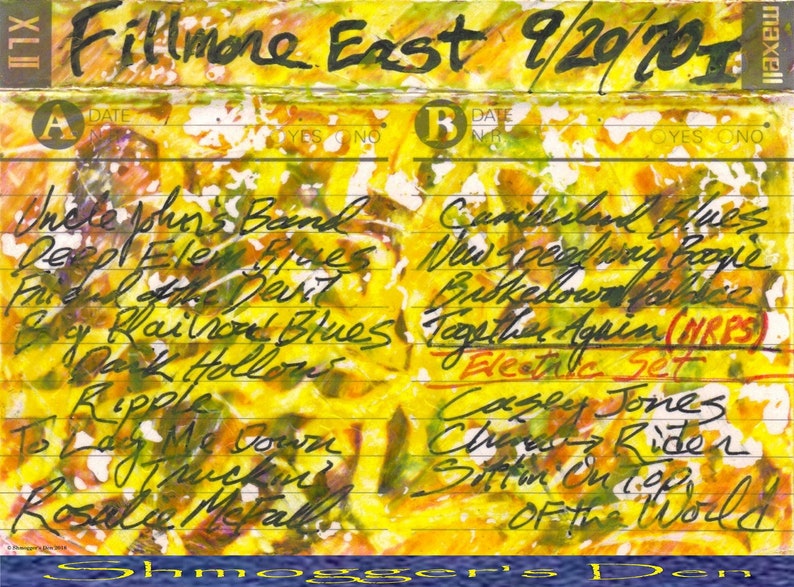 XLII
Fillmore East 9/20/70 I
maxell
A DATE
N.R. YES NO
Uncle John's Band
Deep Elem Blues
Friend of the Devil
Big Railroad Blues
Dark Hollow
Ripple
To Lay Me Down
Truckin'
Rosalie McFall
B DATE
N.R. YES NO
Cumberland Blues
New Speedway Boogie
Brokedown Palace
Together Again (NRPS)
Electric Set
Casey Jones
China > Rider
Sittin' On Top
Of the World
© Shmogger's Den 2018
Shmogger's Den